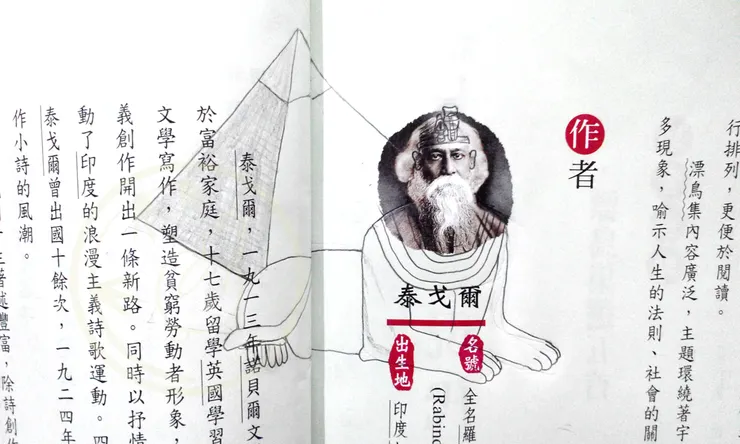 行排列，更便於閱讀。
漂鳥集內容廣泛，主題環繞著宇
多現象，喻示人生的法則、社會的關
作者
泰戈爾
名號
全名羅
(Rabind
出生地
印度
泰戈爾，一九一三年諾貝爾文
於富裕家庭，十七歲留學英國學習
文學寫作，塑造貧窮勞動者形象，
義創作開出一條新路。同時以抒情
動了印度的浪漫主義詩歌運動。四
泰戈爾曾出國十餘次，一九二四年
作小詩的風潮。
著述豐富，除詩創作